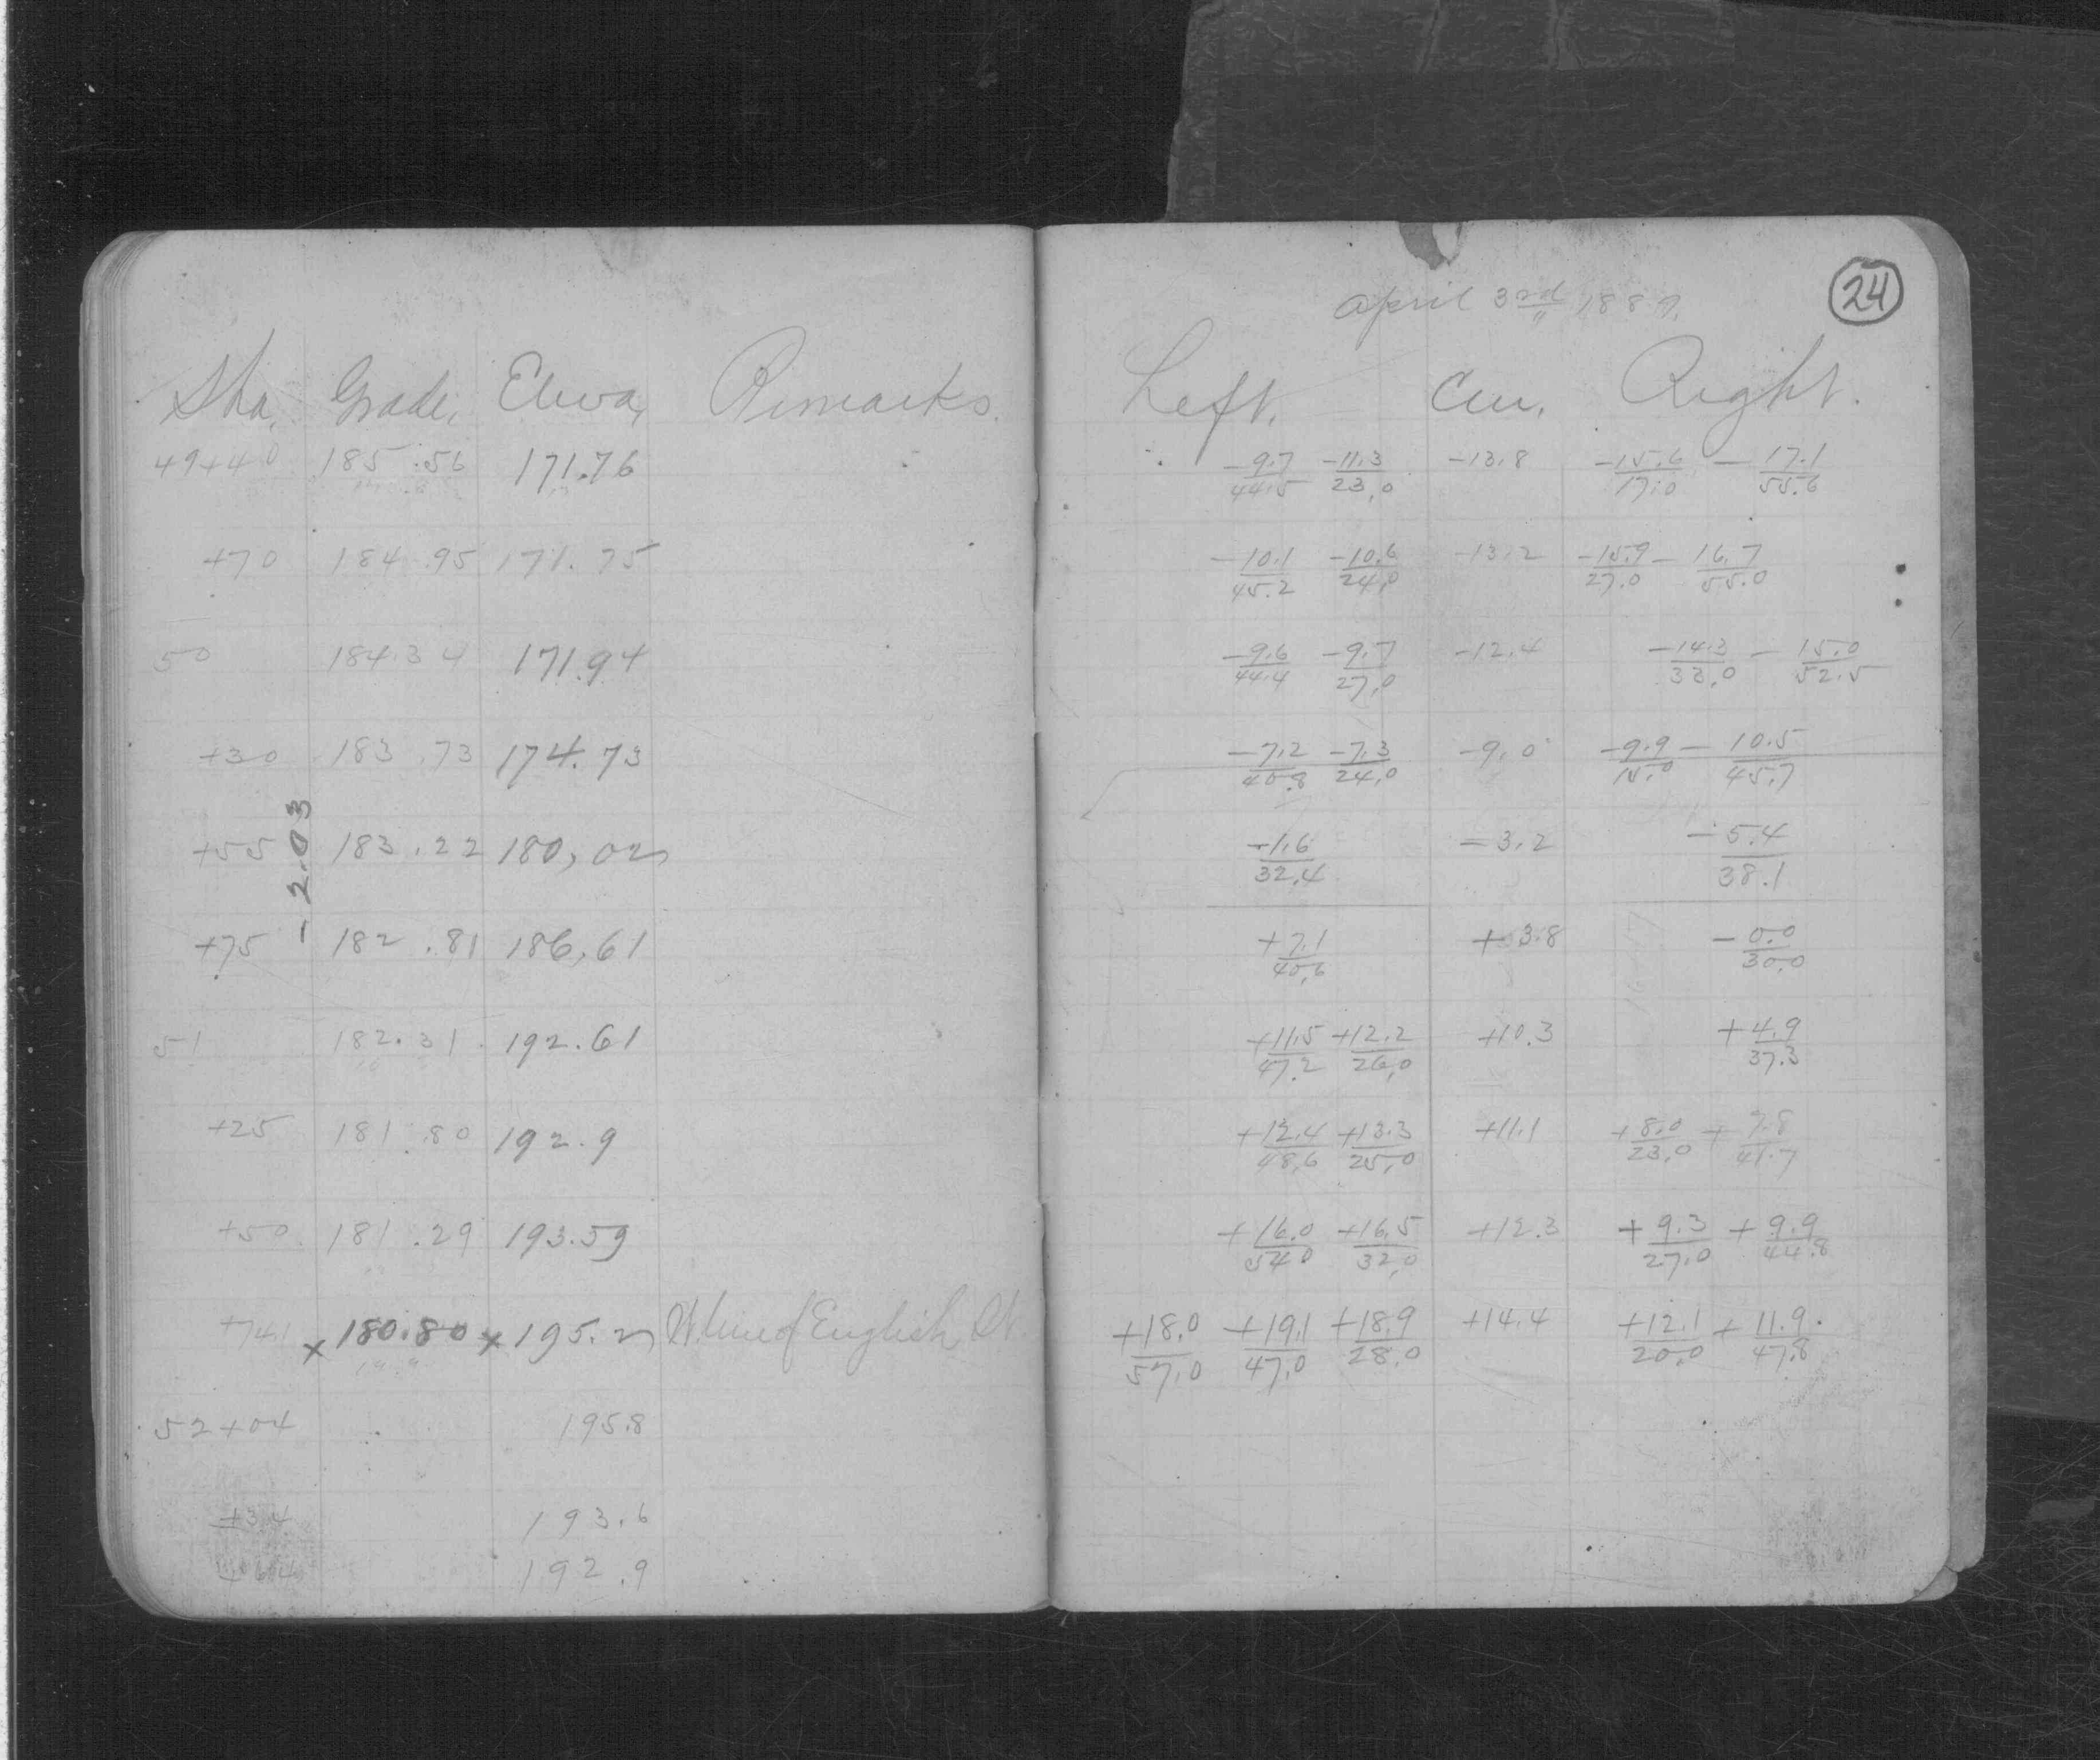 24
April 3rd 1889.
Sta. Grade, Eleva, Remarks. Left. Cen. Right.
49+40 185.56 171.76 -9.7/44.5 -11.3/23.0 -13.8 -15.6/17.0 -17.1/55.6
+70 184.95 171.75 -10.1/45.2 -10.6/24.0 -13.2 -15.9/27.0 -16.7/55.0
50 184.34 171.94 -9.6/44.4 -9.7/27.0 -12.4 -14.3/33.0 -15.0/52.5
+30 183.73 174.73 -7.2/40.8 -7.3/24.0 -9.0 -9.9/15.0 -10.5/45.7
-2.03
+55 183.22 180.02 -1.6/32.4 -3.2 -5.4/38.1
+75 182.81 186.61 +7.1/40.6 +3.8 -0.0/30.0
51 182.31 192.61 +11.5/47.2 +12.2/26.0 +10.3 +4.9/37.3
+25 181.80 192.9 +12.4/48.6 +13.3/25.0 +11.1 +8.0/23.0 +7.8/41.7
+50 181.29 193.59 +16.0/54.0 +16.5/32.0 +12.3 +9.3/27.0 +9.9/44.8
+74.1 x 180.80 x 195.2 W line of English St +18.0/57.0 +19.1/47.0 +18.9/28.0 +14.4 +12.1/20.0 +11.9/47.8
52+04 195.8
+34 193.6
+64 192.9